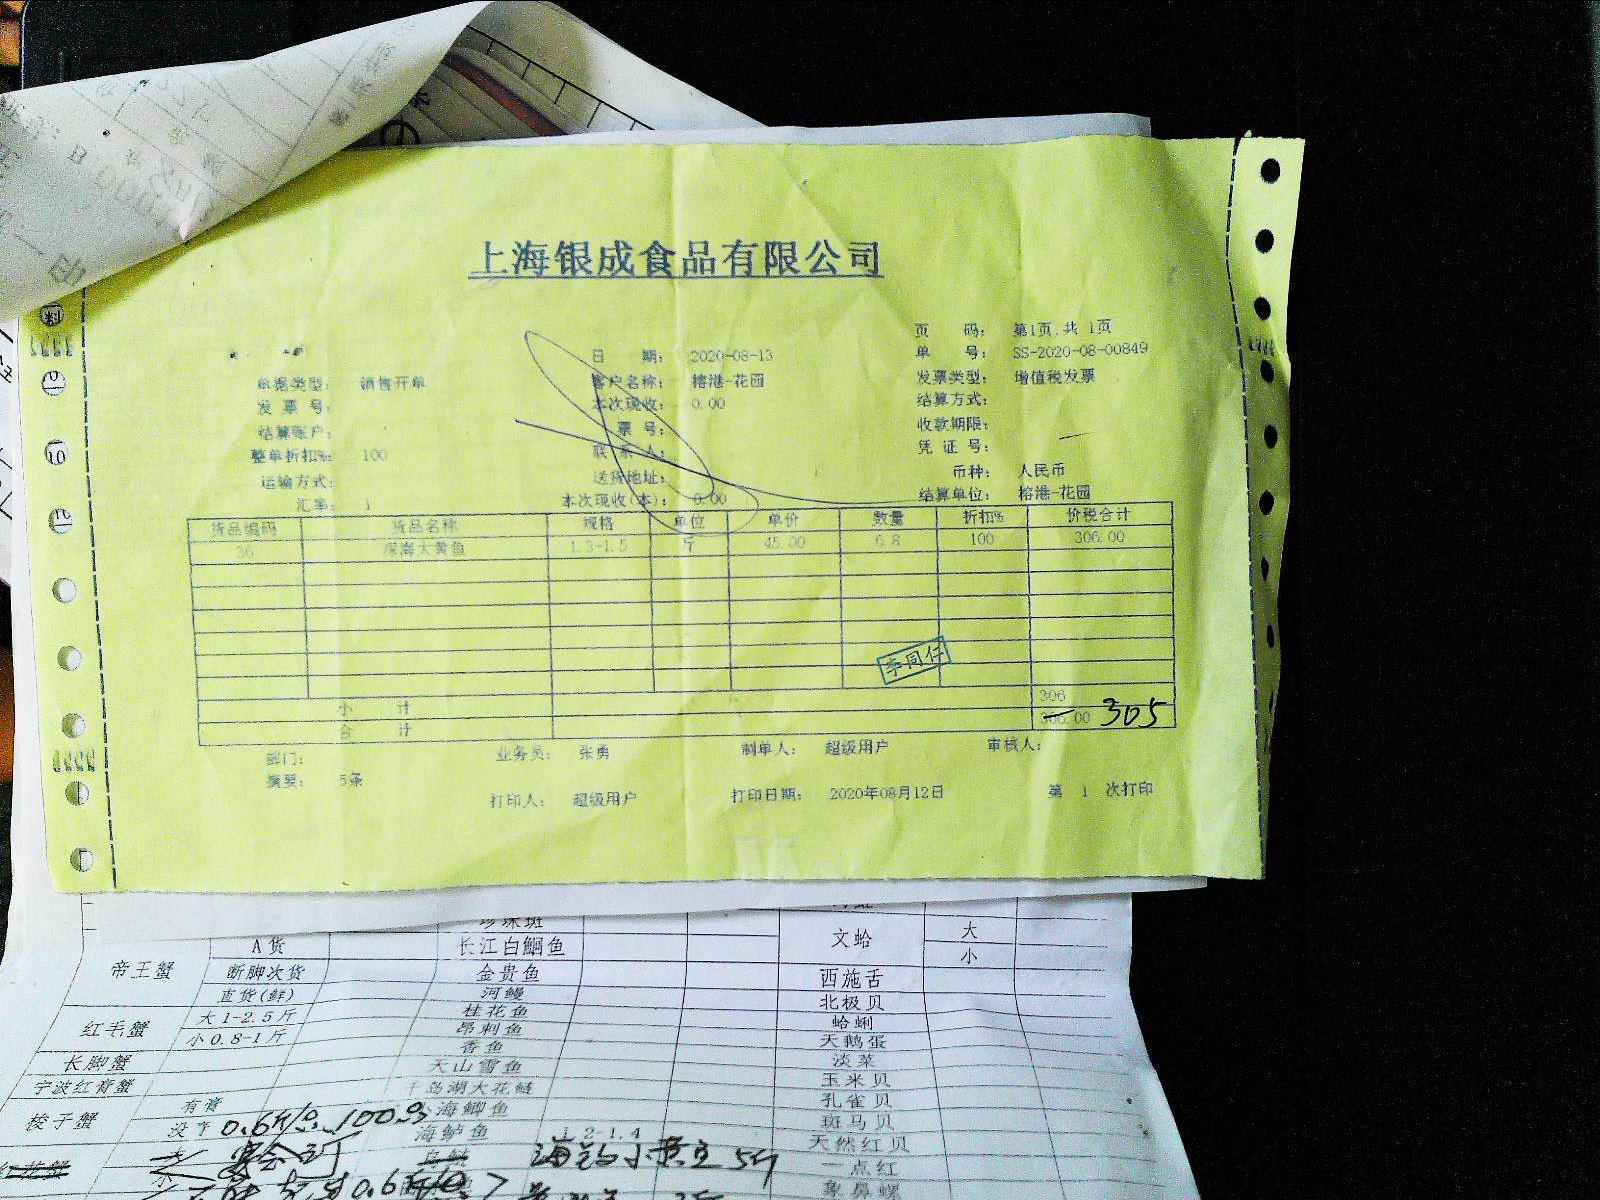 上海银成食品有限公司
页 码: 第1页,共 1页
日 期: 2020-08-13 单 号: SS-2020-08-00849
单据类型: 销售开单 客户名称: 榕港-花园 发票类型: 增值税发票
发 票 号: 本次现收: 0.00 结算方式:
结算账户: 票 号: 收款期限:
整单折扣%: 100 联 系 人: 凭 证 号:
运输方式: 送货地址: 币种: 人民币
汇率: 1 本次现收(本): 0.00 结算单位: 榕港-花园
货品编码 货品名称 规格 单位 单价 数量 折扣% 价税合计
36 深海大黄鱼 1.3-1.5 斤 45.00 6.8 100 306.00
李同仁
小 计 306
合 计 306.00 305
部门: 业务员: 张勇 制单人: 超级用户 审核人:
摘要: 5条
打印人: 超级用户 打印日期: 2020年08月12日 第 1 次打印
珍珠斑
A货 长江白鮰鱼 文蛤 大
小
帝王蟹 断脚次货 金贵鱼 西施舌
直货(鲜) 河鳗 北极贝
红毛蟹 大1-2.5斤 桂花鱼 蛤蜊
小0.8-1斤 昂刺鱼 天鹅蛋
长脚蟹 香鱼 淡菜
宁波红膏蟹 天山雪鱼 玉米贝
千岛湖大花鲢 孔雀贝
梭子蟹 有膏 海鲫鱼 斑马贝
没有 海鲈鱼 1.2-1.4 天然红贝
一点红
象鼻螺